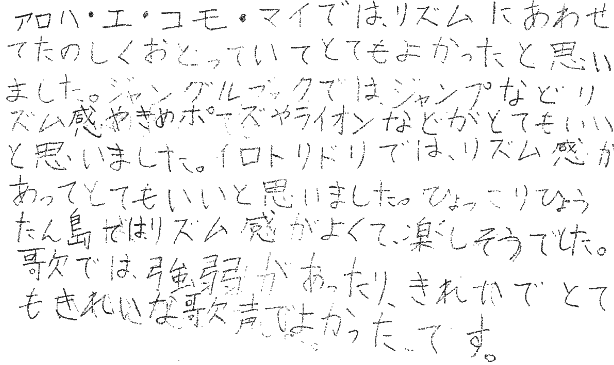 アロハ・エ・コモ・マイでは、リズムにあわせ
てたのしくおどっていてとてもよかったと思い
ました。ジャングルブックでは、ジャンプなどリ
ズム感やきめポーズやライオンなどがとてもいい
と思いました。イロトリドリでは、リズム感が
あってとてもいいと思いました。ひょっこりひょう
たん島ではリズム感がよくて、楽しそうでした。
歌では、強弱があったり、きれいでとて
もきれいな歌声でよかったです。